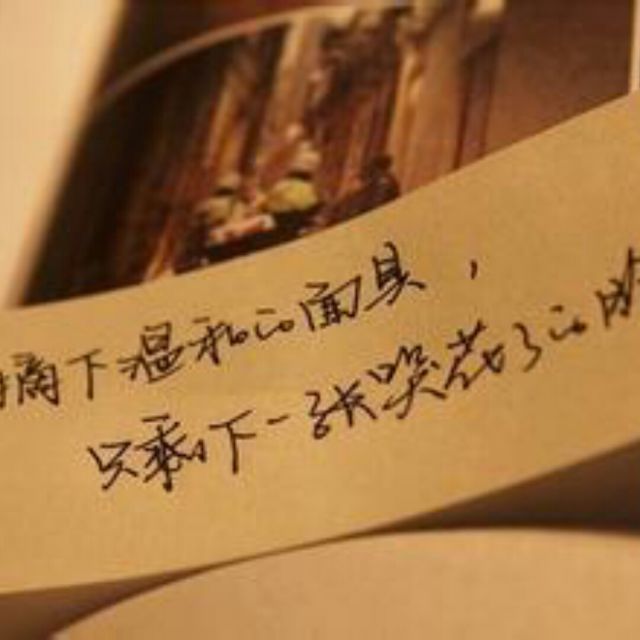 摘下温和的面具，
只剩下一张哭花了的